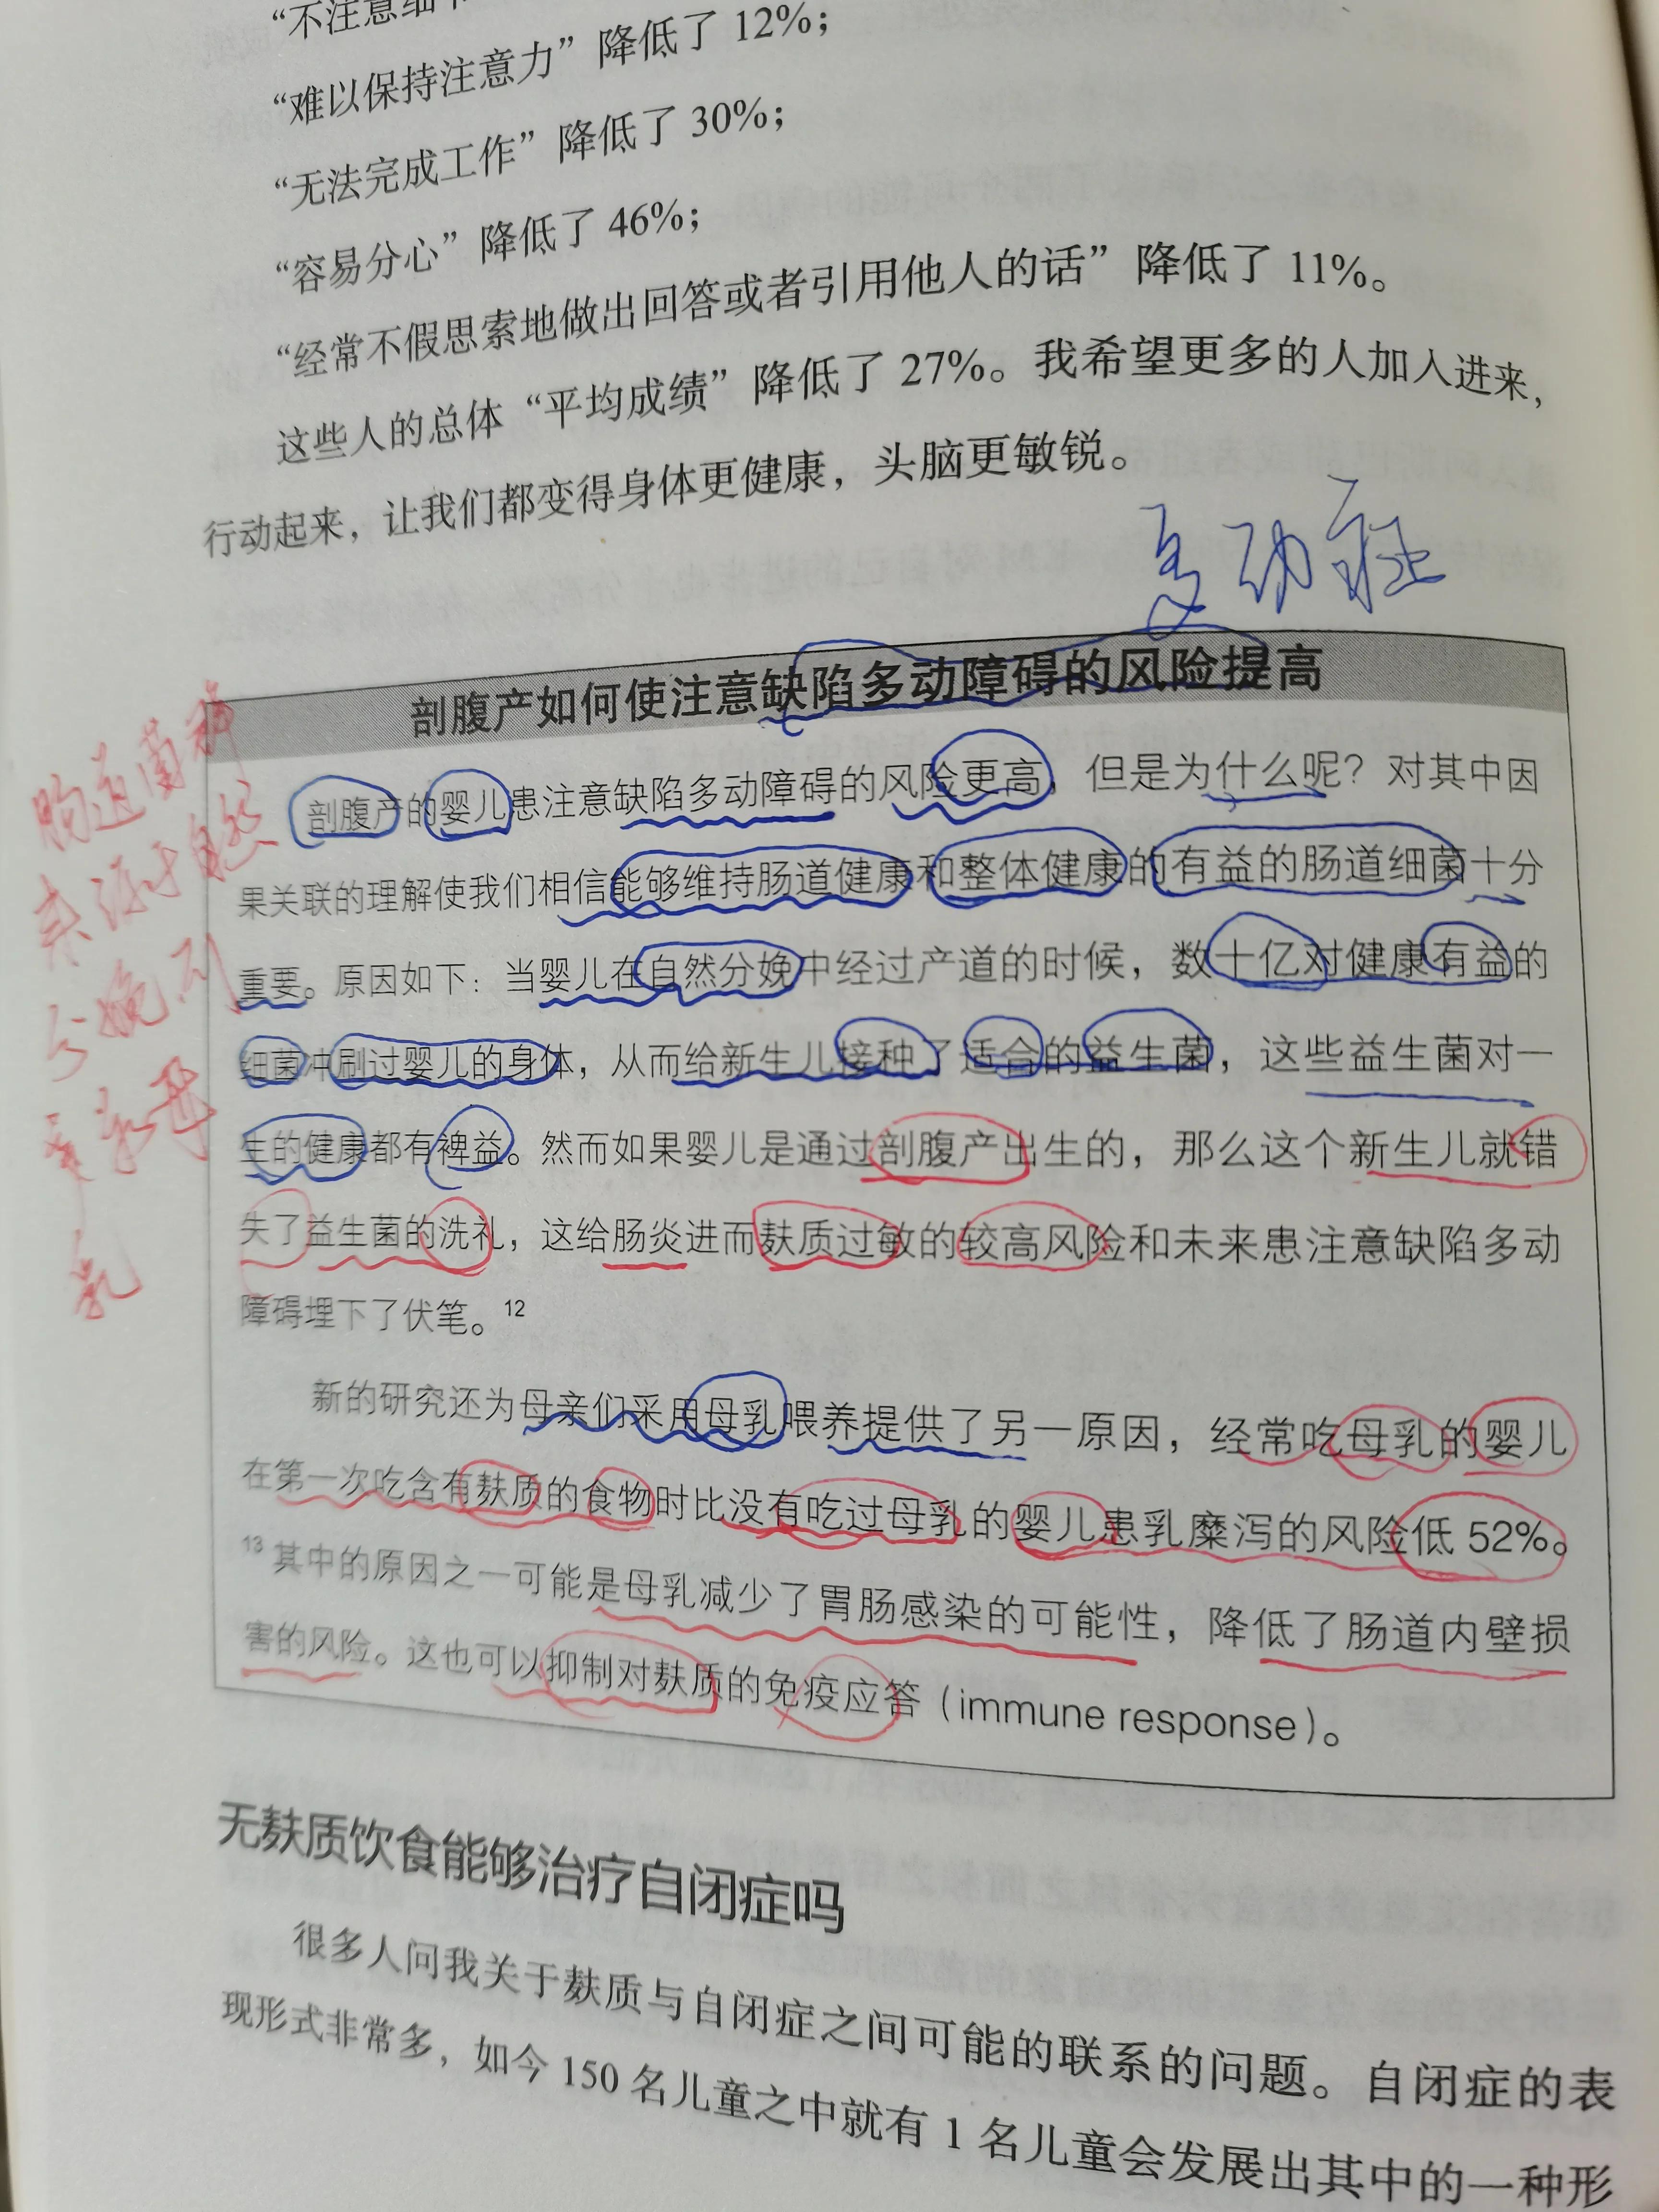 “不注意细节
“难以保持注意力”降低了 12%；
“无法完成工作”降低了 30%；
“容易分心”降低了 46%；
“经常不假思索地做出回答或者引用他人的话”降低了 11%。
这些人的总体“平均成绩”降低了 27%。我希望更多的人加入进来，
行动起来，让我们都变得身体更健康，头脑更敏锐。
多动症
剖腹产如何使注意缺陷多动障碍的风险提高
剖腹产的婴儿患注意缺陷多动障碍的风险更高，但是为什么呢？对其中因
果关联的理解使我们相信能够维持肠道健康和整体健康的有益的肠道细菌十分
重要。原因如下：当婴儿在自然分娩中经过产道的时候，数十亿对健康有益的
细菌冲刷过婴儿的身体，从而给新生儿接种了适合的益生菌，这些益生菌对一
生的健康都有裨益。然而如果婴儿是通过剖腹产出生的，那么这个新生儿就错
失了益生菌的洗礼，这给肠炎进而麸质过敏的较高风险和未来患注意缺陷多动
障碍埋下了伏笔。12
新的研究还为母亲们采用母乳喂养提供了另一原因，经常吃母乳的婴儿
在第一次吃含有麸质的食物时比没有吃过母乳的婴儿患乳糜泻的风险低 52%。
13 其中的原因之一可能是母乳减少了胃肠感染的可能性，降低了肠道内壁损
害的风险。这也可以抑制对麸质的免疫应答（immune response）。
肠道菌种
来源于自然
分娩and
乳
无麸质饮食能够治疗自闭症吗
很多人问我关于麸质与自闭症之间可能的联系的问题。自闭症的表
现形式非常多，如今 150 名儿童之中就有 1 名儿童会发展出其中的一种形